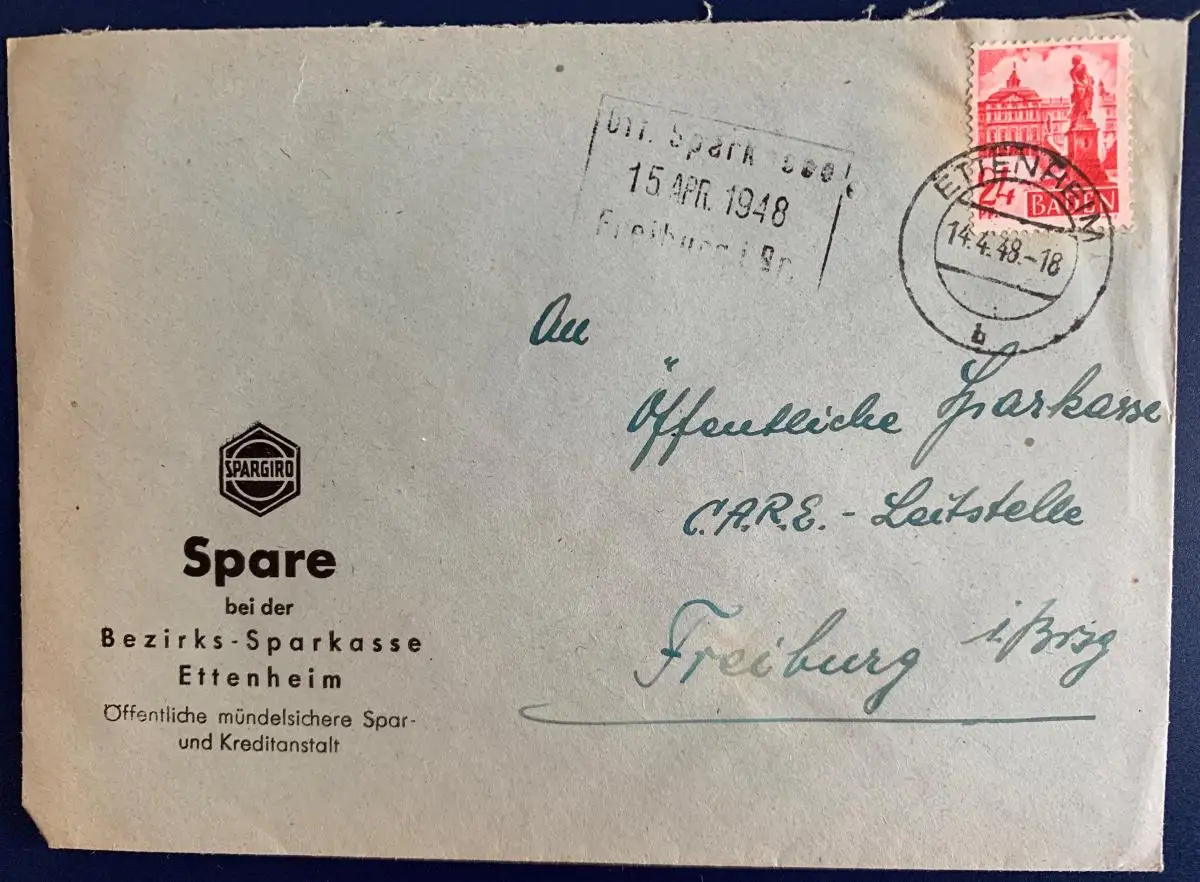 Öff. Sparkasse
15 APR. 1948
Freiburg i. Br.
24
Pf.
BADEN
ETTENHEIM
14.4.48.-18
b
An
Öffentliche Sparkasse
C.A.R.E. - Leitstelle
Freiburg i/Brsg
SPARGIRO
Spare
bei der
Bezirks-Sparkasse
Ettenheim
Öffentliche mündelsichere Spar-
und Kreditanstalt